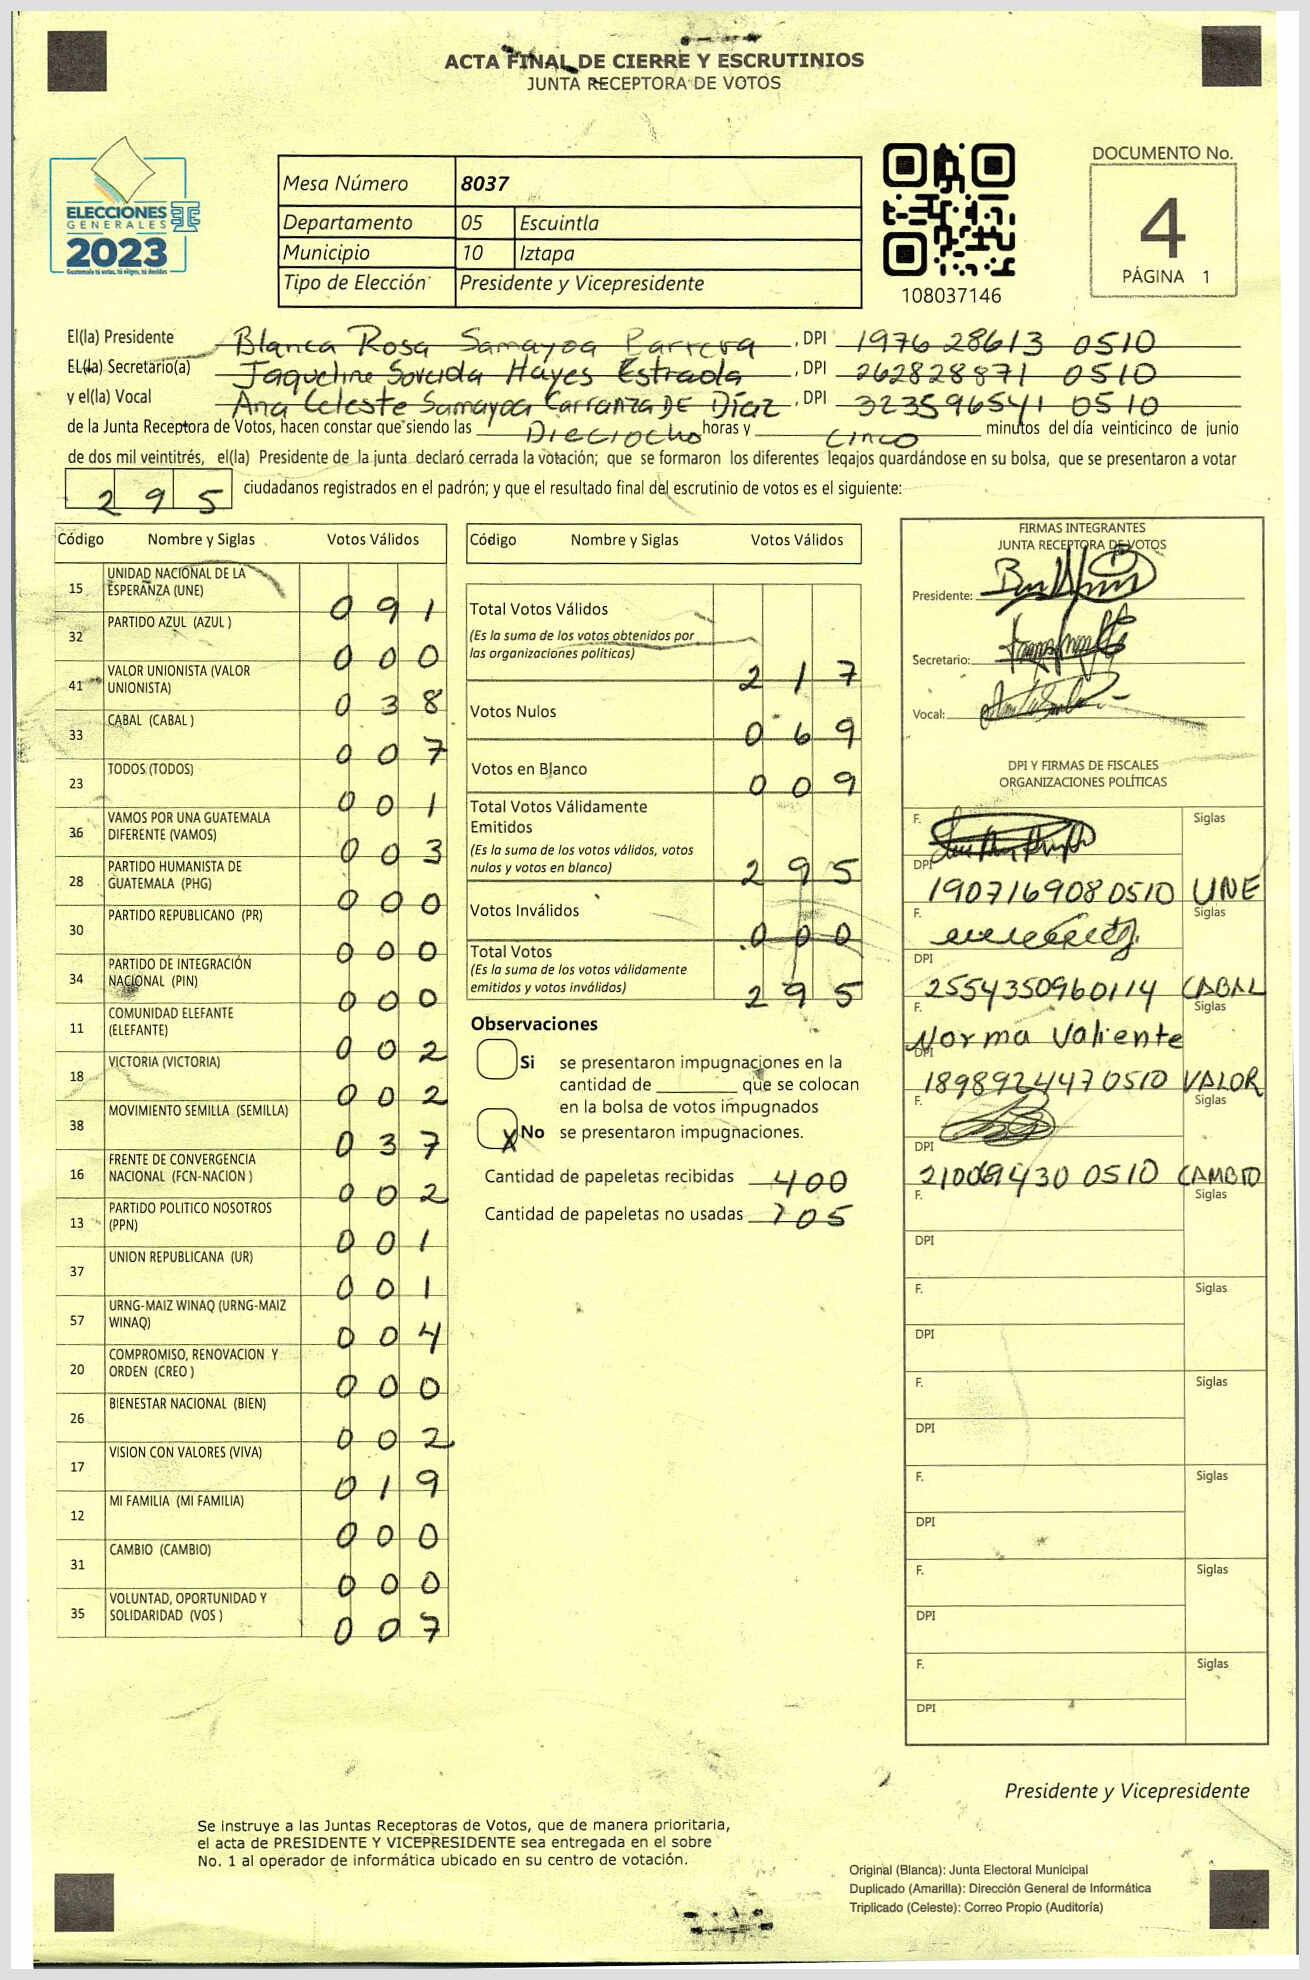 ACTA FINAL DE CIERRE Y ESCRUTINIOS
JUNTA RECEPTORA DE VOTOS
ELECCIONES
GENERALES
2023
Guatemala tú votas, tú eliges, tú decides
Mesa Número 8037
Departamento 05 Escuintla
Municipio 10 Iztapa
Tipo de Elección Presidente y Vicepresidente
108037146
DOCUMENTO No.
4
PÁGINA 1
El(la) Presidente Blanca Rosa Samayoa Barrera, DPI 1976 28613 0510
EL(la) Secretario(a) Jaqueline Soreida Hayes Estrada, DPI 262828871 0510
y el(la) Vocal Ana Celeste Samayoa Carranza DE Díaz, DPI 323596541 0510
de la Junta Receptora de Votos, hacen constar que siendo las Dieciocho horas y cinco minutos del día veinticinco de junio
de dos mil veintitrés, el(la) Presidente de la junta declaró cerrada la votación; que se formaron los diferentes legajos guardándose en su bolsa, que se presentaron a votar
295 ciudadanos registrados en el padrón; y que el resultado final del escrutinio de votos es el siguiente:
Código Nombre y Siglas Votos Válidos
15 UNIDAD NACIONAL DE LA ESPERANZA (UNE) 091
32 PARTIDO AZUL (AZUL ) 000
41 VALOR UNIONISTA (VALOR UNIONISTA) 038
33 CABAL (CABAL ) 007
23 TODOS (TODOS) 001
36 VAMOS POR UNA GUATEMALA DIFERENTE (VAMOS) 003
28 PARTIDO HUMANISTA DE GUATEMALA (PHG) 000
30 PARTIDO REPUBLICANO (PR) 000
34 PARTIDO DE INTEGRACIÓN NACIONAL (PIN) 000
11 COMUNIDAD ELEFANTE (ELEFANTE) 002
18 VICTORIA (VICTORIA) 002
38 MOVIMIENTO SEMILLA (SEMILLA) 037
16 FRENTE DE CONVERGENCIA NACIONAL (FCN-NACION ) 002
13 PARTIDO POLITICO NOSOTROS (PPN) 001
37 UNION REPUBLICANA (UR) 001
57 URNG-MAIZ WINAQ (URNG-MAIZ WINAQ) 004
20 COMPROMISO, RENOVACION Y ORDEN (CREO ) 000
26 BIENESTAR NACIONAL (BIEN) 002
17 VISION CON VALORES (VIVA) 019
12 MI FAMILIA (MI FAMILIA) 000
31 CAMBIO (CAMBIO) 000
35 VOLUNTAD, OPORTUNIDAD Y SOLIDARIDAD (VOS ) 007
Código Nombre y Siglas Votos Válidos
Total Votos Válidos 217
(Es la suma de los votos obtenidos por
las organizaciones políticas)
Votos Nulos 069
Votos en Blanco 009
Total Votos Válidamente
Emitidos
(Es la suma de los votos válidos, votos
nulos y votos en blanco) 295
Votos Inválidos 000
Total Votos
(Es la suma de los votos válidamente
emitidos y votos inválidos) 295
Observaciones
Si se presentaron impugnaciones en la
cantidad de ________ que se colocan
en la bolsa de votos impugnados
X No se presentaron impugnaciones.
Cantidad de papeletas recibidas 400
Cantidad de papeletas no usadas 105
FIRMAS INTEGRANTES
JUNTA RECEPTORA DE VOTOS
Presidente:
Secretario:
Vocal:
DPI Y FIRMAS DE FISCALES
ORGANIZACIONES POLÍTICAS
F. Siglas
DPI 1907169080510 UNE
F. Siglas
DPI 2554350960114 CABAL
F. Norma Valiente Siglas
DPI 1898924470510 VALOR
F. Siglas
DPI 0510 CAMBIO
F. Siglas
DPI
F. Siglas
DPI
F. Siglas
DPI
F. Siglas
DPI
F. Siglas
DPI
F. Siglas
DPI
Presidente y Vicepresidente
Se instruye a las Juntas Receptoras de Votos, que de manera prioritaria,
el acta de PRESIDENTE Y VICEPRESIDENTE sea entregada en el sobre
No. 1 al operador de informática ubicado en su centro de votación.
Original (Blanca): Junta Electoral Municipal
Duplicado (Amarilla): Dirección General de Informática
Triplicado (Celeste): Correo Propio (Auditoría)